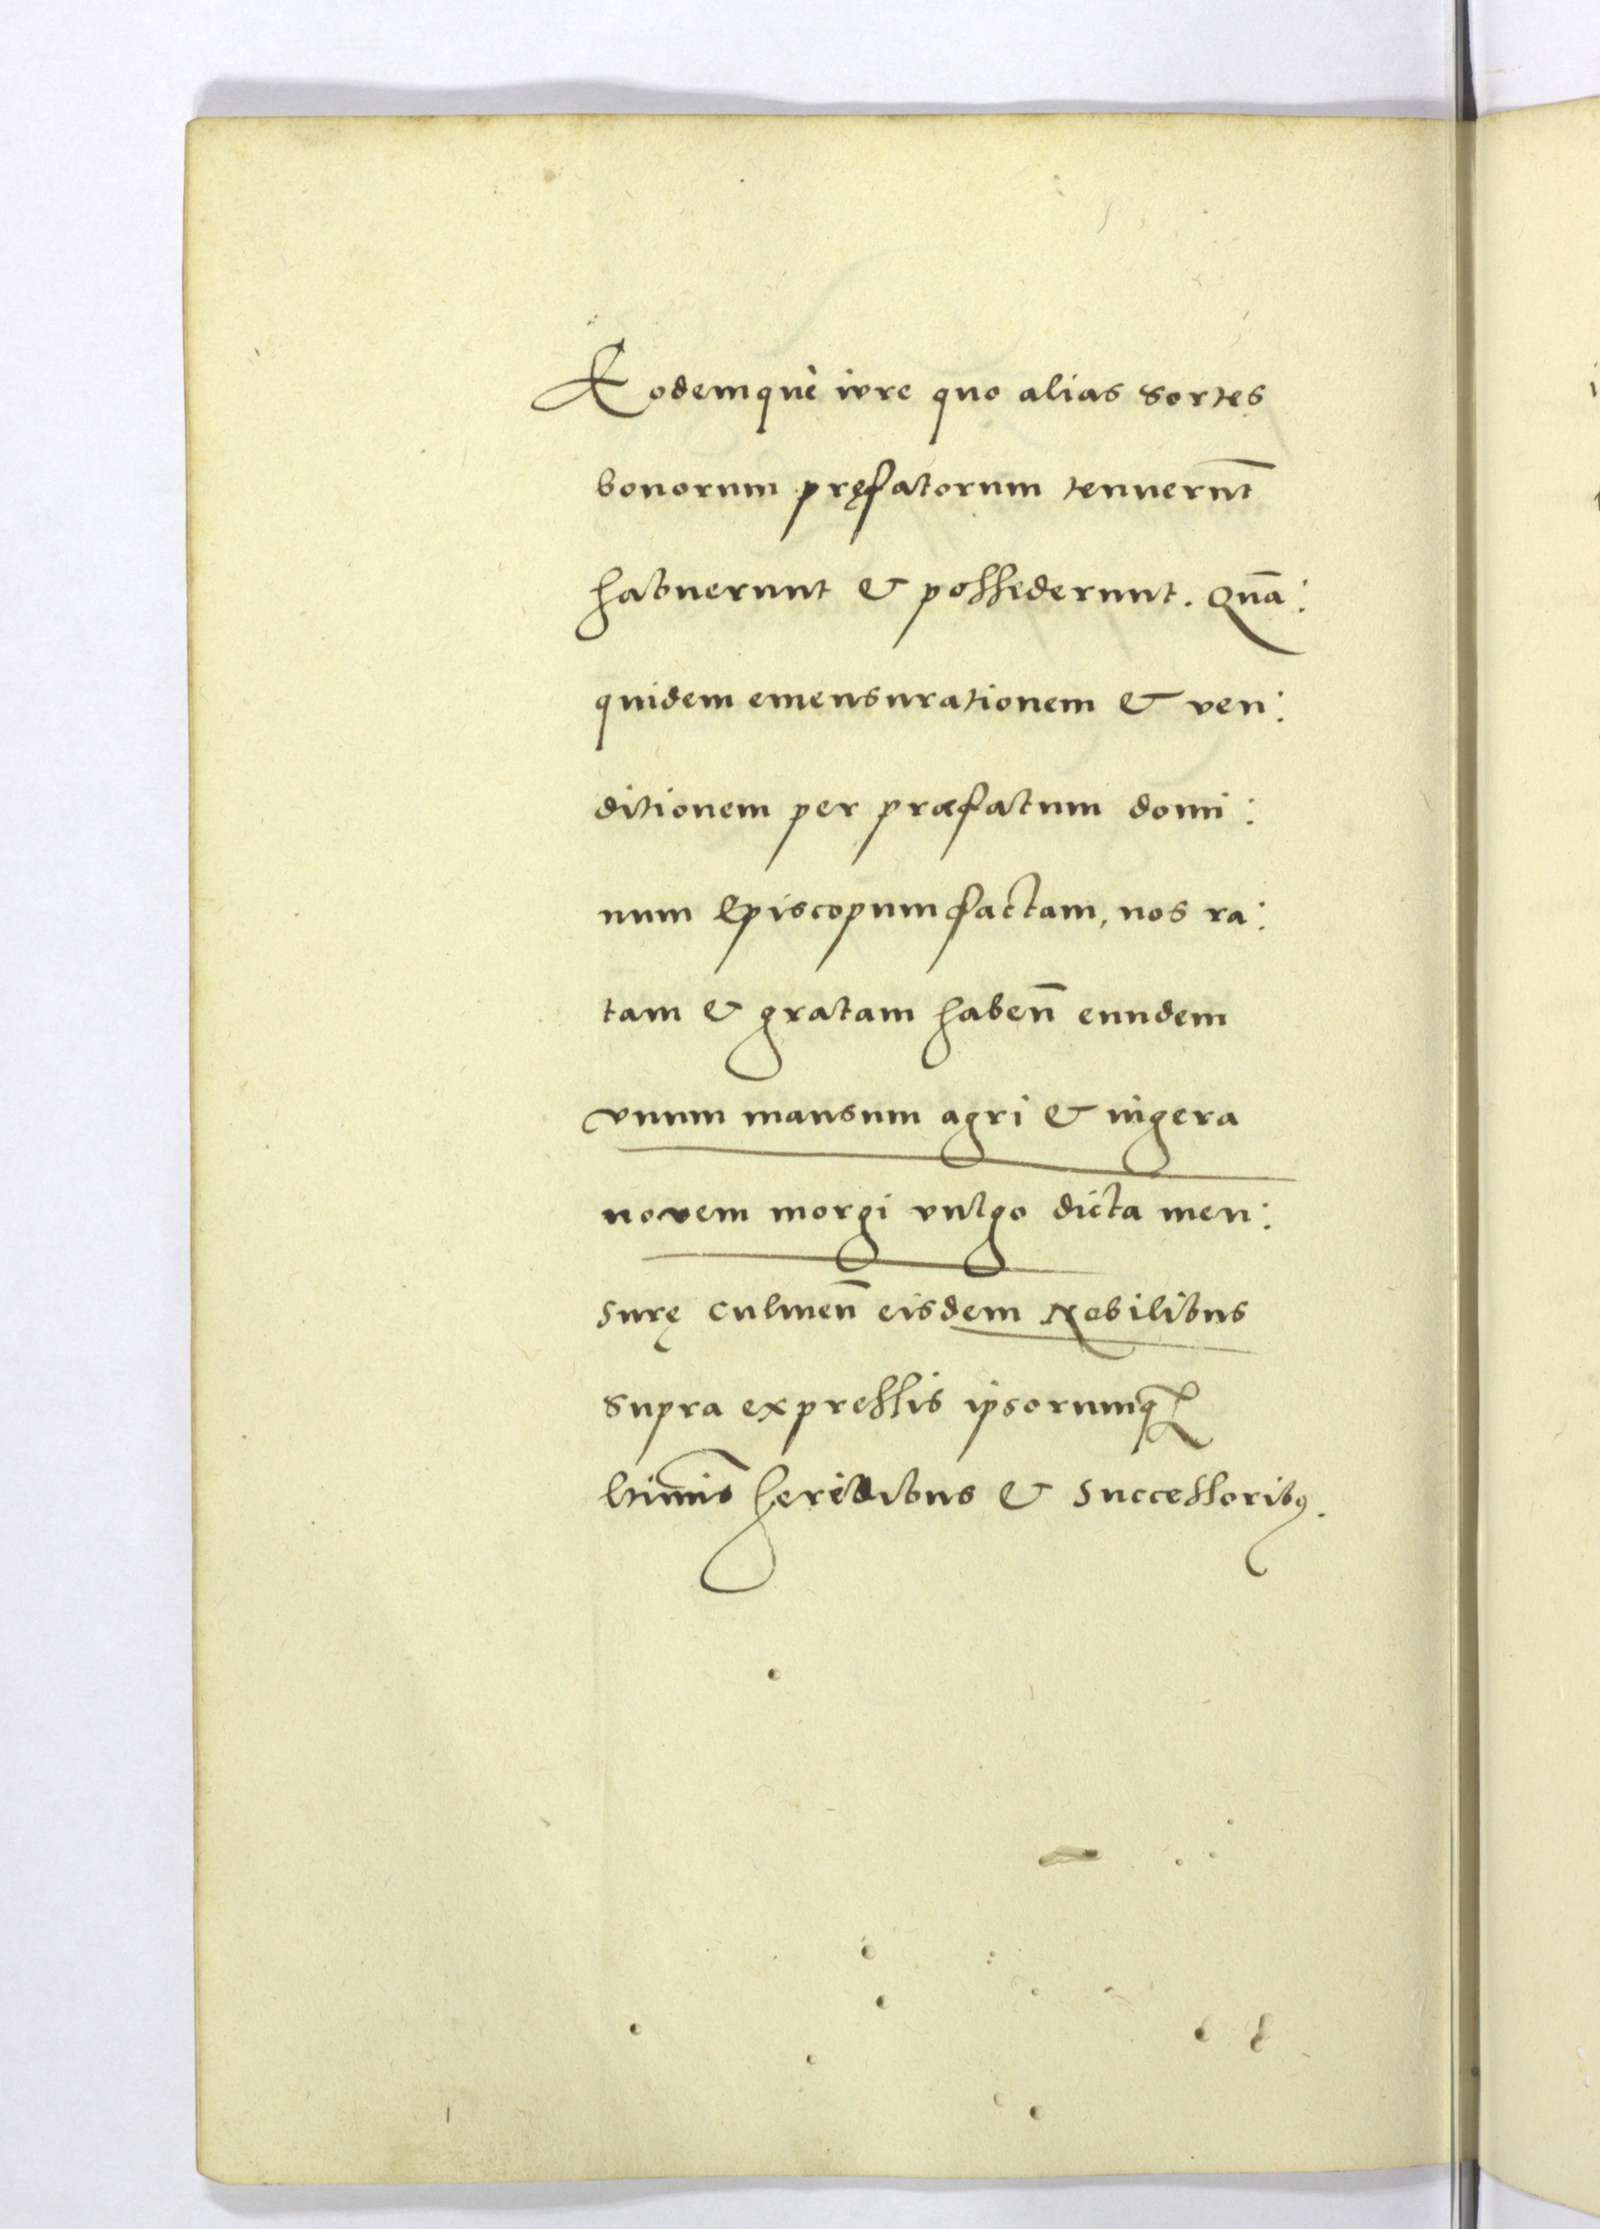 Eodemquè iure quo alias sortes
bonorum pręfatorum tenuerūt
habuerunt & possederunt. Quā:
quidem emensurationem & ven:
ditionem per præfatum domi:
num Episcopum factam, nos ra:
tam & gratam haben̄ eundem
vnum mansum agri & iugera
novem morgi vulgo dicta men:
surę culmen̄ eisdem Nobilibus
supra expressis ipsorumq́ꝫ
ltimis̄ heredibus & successoribꝰ.